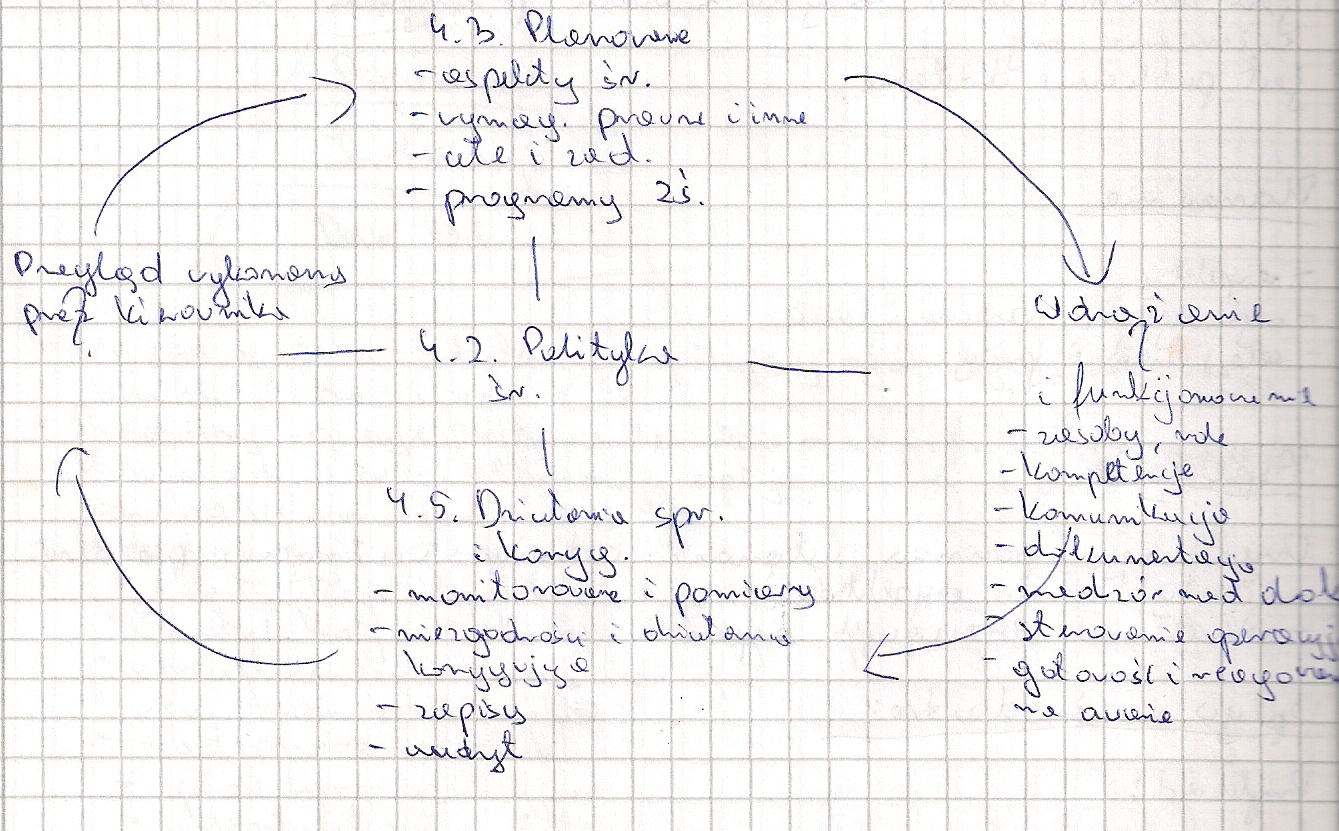 4.3. Planowanie
- aspekty śr.
- wymag. prawne i inne
- cele i zad.
- programy zś.
Przegląd wykonany
przez kierownika
4.2. Polityka
śr.
Wdrożenie
i funkcjonowanie
- zasoby, role
- kompetencje
- komunikacja
- dokumentacja
- nadzór nad dok
- sterowanie operacyj
- gotowość i reagowan
na awarie
4.5. Działania spr.
i koryg.
- monitorowanie i pomiary
- niezgodności i działania
korygujące
- zapisy
- audyt